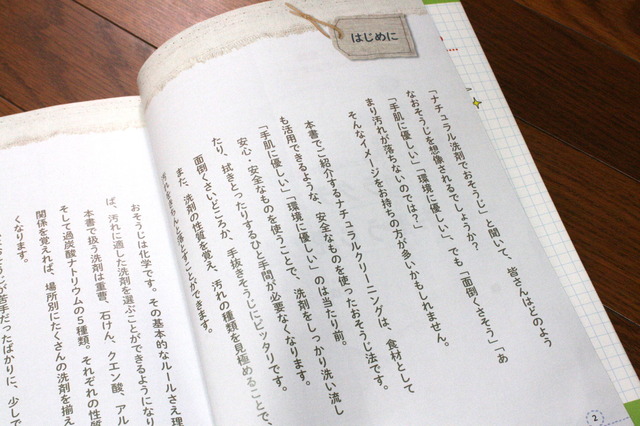 はじめに
「ナチュラル洗剤でおそうじ」と聞いて、皆さんはどのよう
なおそうじを想像されるでしょうか？
「手肌に優しい」「環境に優しい」、でも「面倒くさそう」「あ
まり汚れが落ちないのでは？」
そんなイメージをお持ちの方が多いかもしれません。
本書でご紹介するナチュラルクリーニングは、食材として
も活用できるような、安全なものを使ったおそうじ法です。
「手肌に優しい」「環境に優しい」のは当たり前。
安心・安全なものを使うことで、洗剤をしっかり洗い流し
たり、拭きとったりするひと手間が必要なくなります。
面倒くさいどころか、手抜きそうじにピッタリです。
また、洗剤の性質を覚え、汚れの種類を見極めることで、
汚れをきちんと落とすことができます。
おそうじは化学です。その基本的なルールさえ理
ば、汚れに適した洗剤を選ぶことができるようになり
本書で扱う洗剤は重曹、石けん、クエン酸、アル
そして過炭酸ナトリウムの5種類。それぞれの性質
関係を覚えれば、場所別にたくさんの洗剤を揃え
くなります。
が苦手だったばかりに、少しで
2